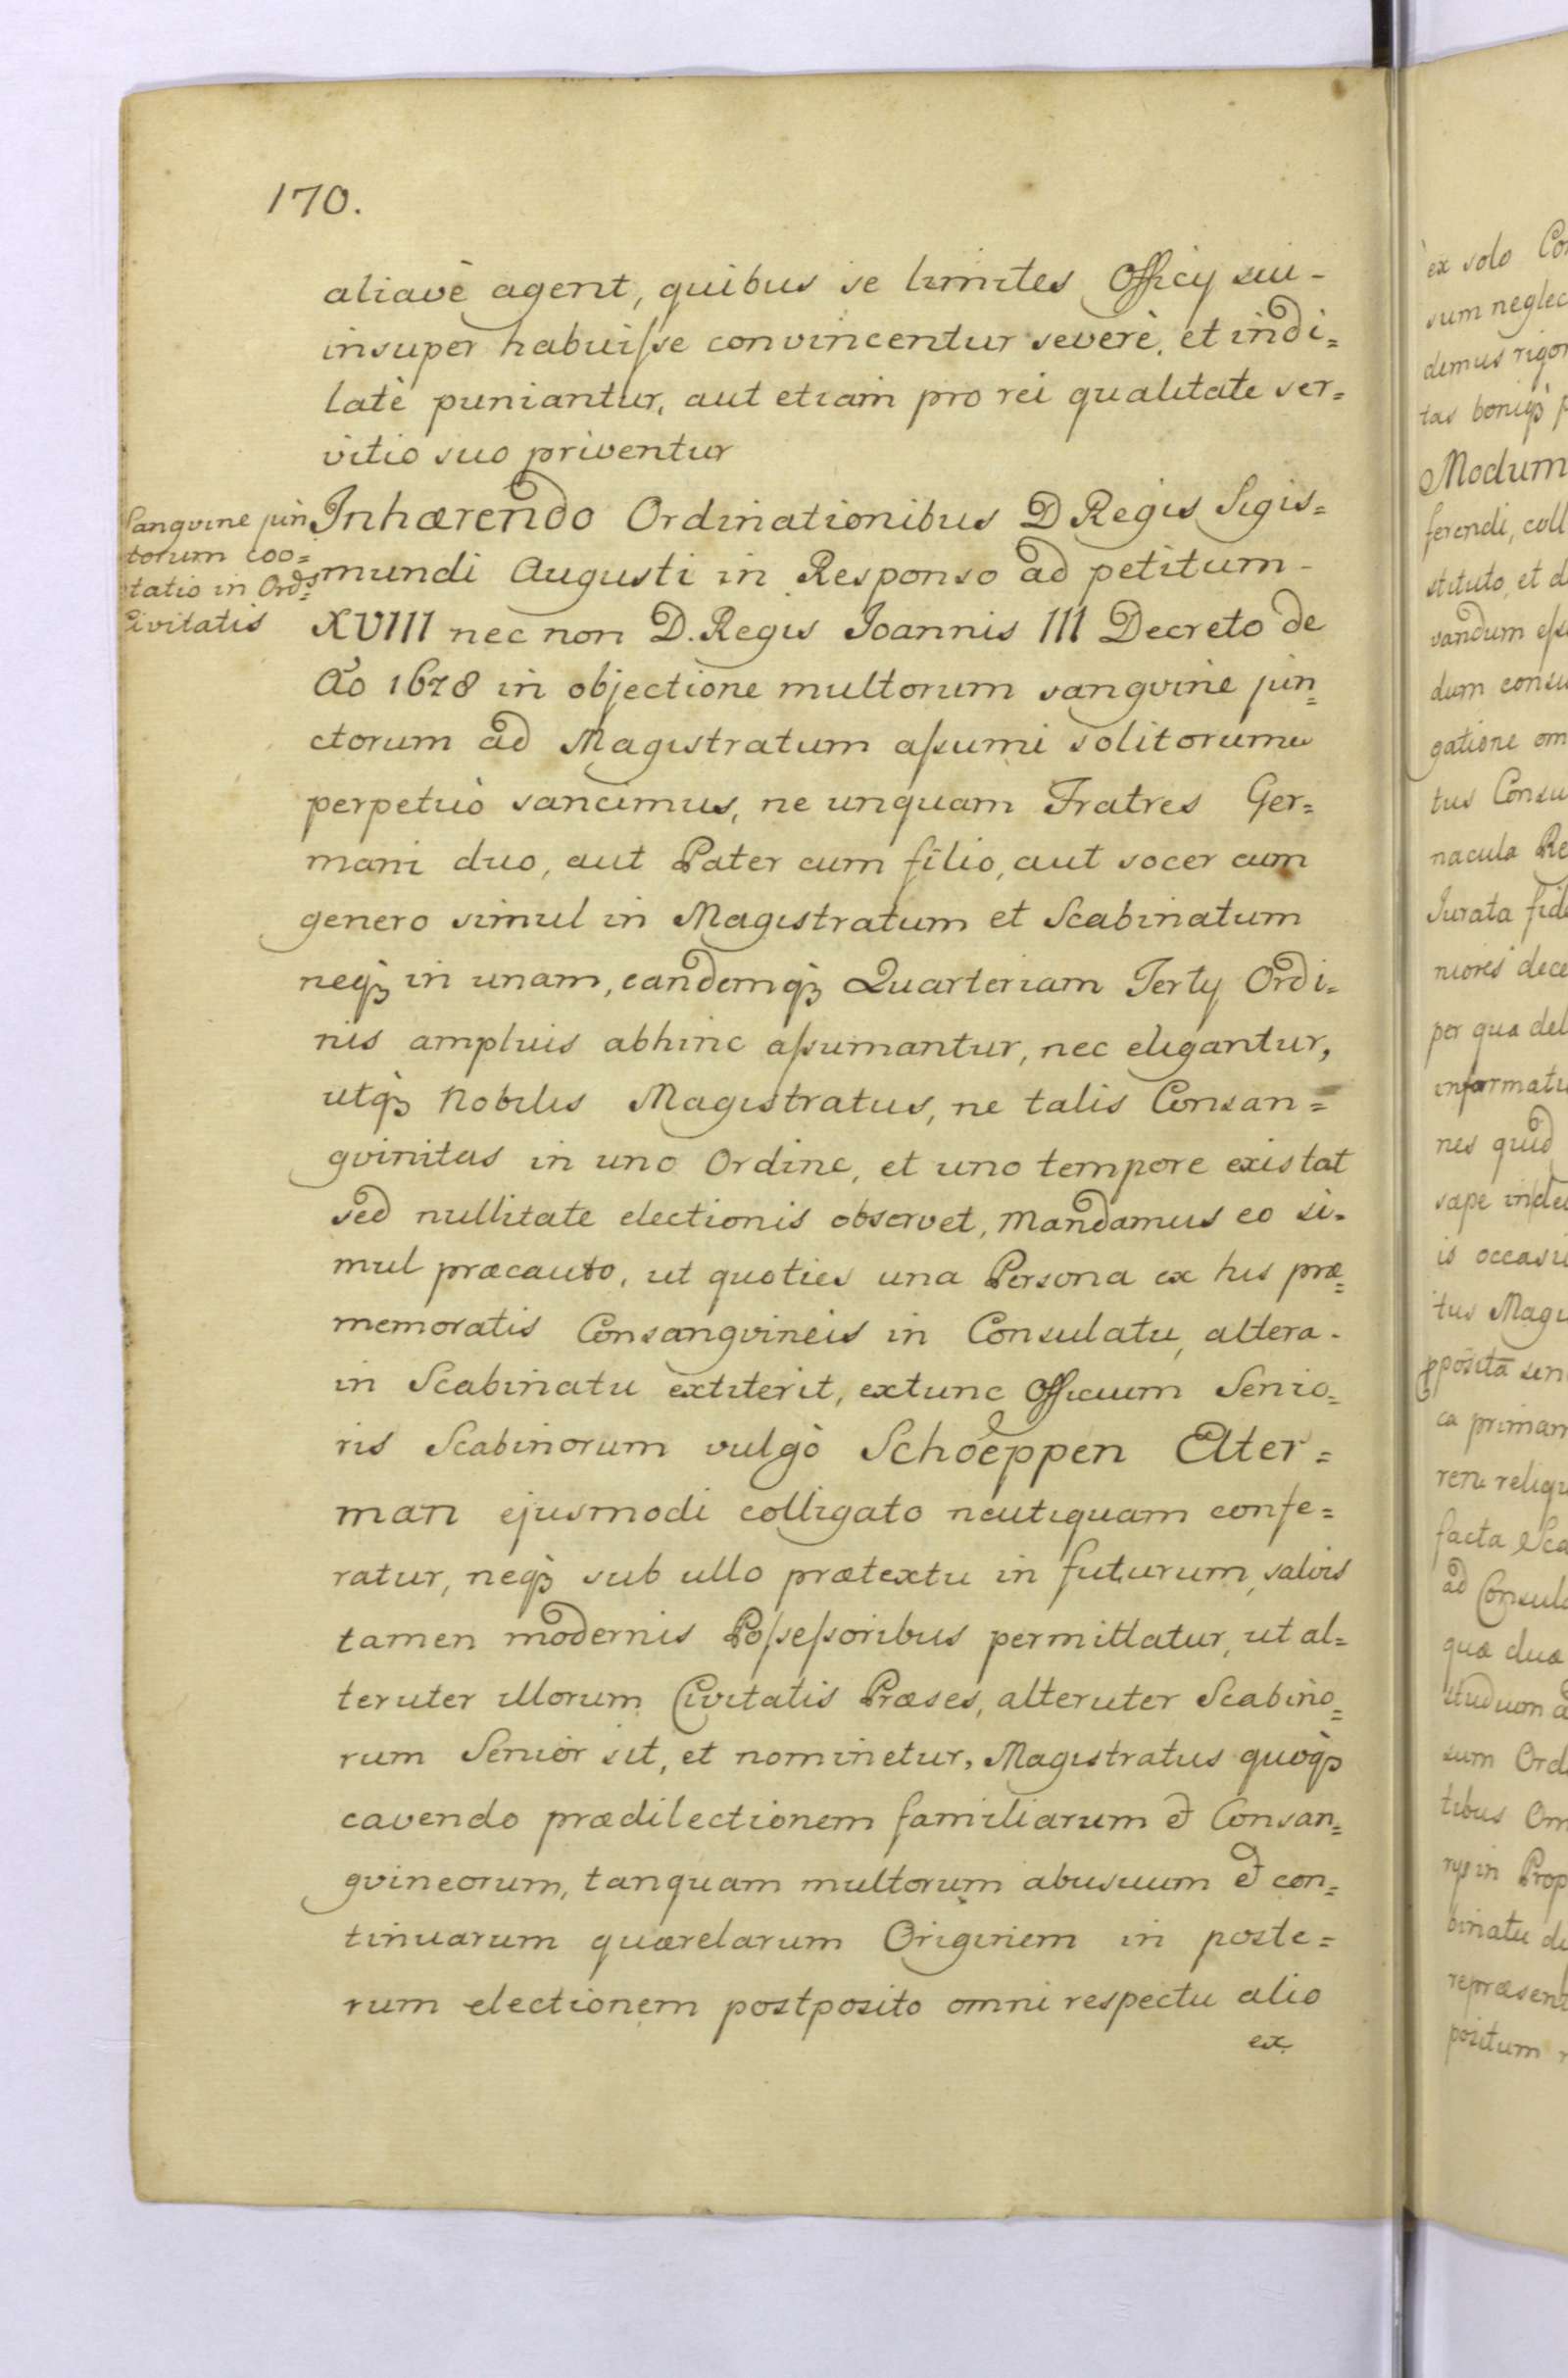 170.
aliavè agent, quibus se limites Officÿ sui-
insuper habuiſse convincentur severè, et indi=
latè puniantur, aut etiam pro rei qualitate ser=
vitio suo priventur
Sanguine jun
torum coo=
ptatio in Ord:
Civitatis
Inhærendo Ordinationibus D Regis Sigis=
mundi Augusti in Responso ad petitum-
XVIII nec non D. Regis Joannis III Decreto de
Ao 1678 in objectione multorum sangvine jun=
ctorum ad Magistratum aſsumi solitorum
perpetuò sancimus, ne unquam Fratres Ger=
mani duo, aut Pater cum filio, aut socer cum
genero simul in Magistratum et Scabinatum
neqꝫ in unam, eandemqꝫ Quarteriam Tertÿ Ordi=
nis amplius abhinc aſsumantur, nec eligantur,
utqꝫ Nobilis Magistratus, ne talis Consan=
gvinitas in uno Ordine, et uno tempore existat
sed nullitate electionis observet, Mandamus eo si=
mul præcauto, ut quoties una Persona ex his præ=
memoratis Consangvineis in Consulatu, altera-
in Scabinatu extiterit, extunc Officium Senio=
ris Scabinorum vulgò Schöeppen Elter=
man ejusmodi colligato neutiquam confe=
ratur, neqꝫ sub ullo prætextu in futurum, salvis
tamen modernis Poſseſsoribus permittatur, ut al=
teruter illorum Civitatis Præses, alteruter Scabino=
rum Senior sit, et nominetur, Magistratus quoqꝫ
cavendo prædilectionem familiarum et Consan=
gvineorum, tanquam multorum abusuum et con=
tinuarum quærelarum Originem in poste=
rum electionem postposito omni respectu alio
ex
ex solo
sum neglec
demus rigor
tas boniqꝫ
Modum
ferendi, coll
stituto, et d
vandum
dum consu
gatione om
tus Consu
nacula Re
Jurata fid
niores dece
per qua del
informatu
nes quid
sæpe
is occasi
tus Magi
posita sen
ca primam
reru reliqu
facta Sca
ad Consula
quæ duæ
sum Ord
tibus Om
in Prop
binatu d
repræsent
positum